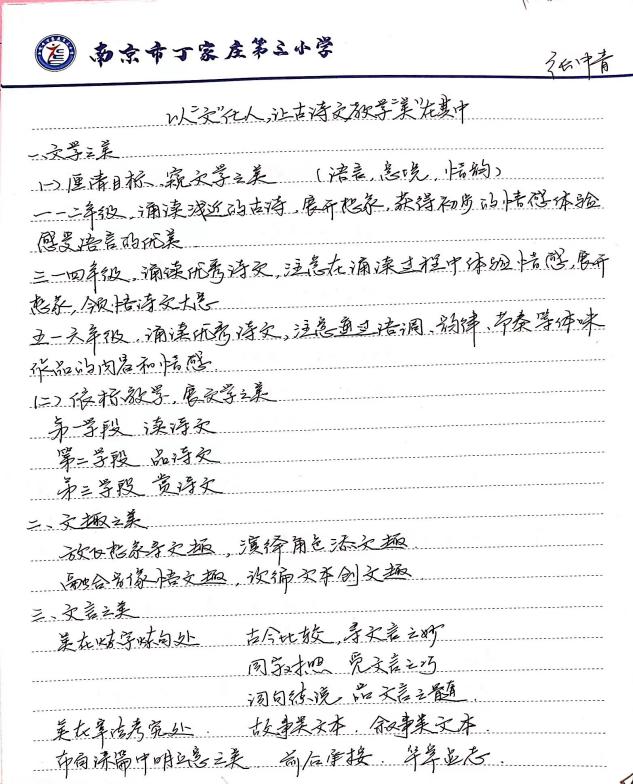 南京市丁家庄第三小学
张冲青
以“文”化人,让古诗文教学“美”在其中
一、文学之美
(一)厘清目标、窥文学之美 (语言、意境、情韵)
一一二年级,诵读浅近的古诗,展开想象,获得初步的情感体验
感受语言的优美
三一四年级,诵读优秀诗文,注意在诵读过程中体验情感,展开
想象,领悟诗文大意
五一六年级,诵读优秀诗文,注意通过语调、韵律、节奏等体味
作品的内容和情感.
(二)依标教学,展文学之美
第一学段 读诗文
第二学段 品诗文
第三学段 赏诗文
二、文趣之美
放飞想象寻文趣,演绎角色添文趣
融合音像悟文趣,改编文本创文趣.
三、文言之美
美在炼字炼句处 古今比较,寻文言之妙
同字对照 觅文言之巧
词句练说 品文言之髓.
美在章法考究处 故事类文本. 叙事类文本.
布局谋篇中明立意之美 前后承接. 卒章显志.